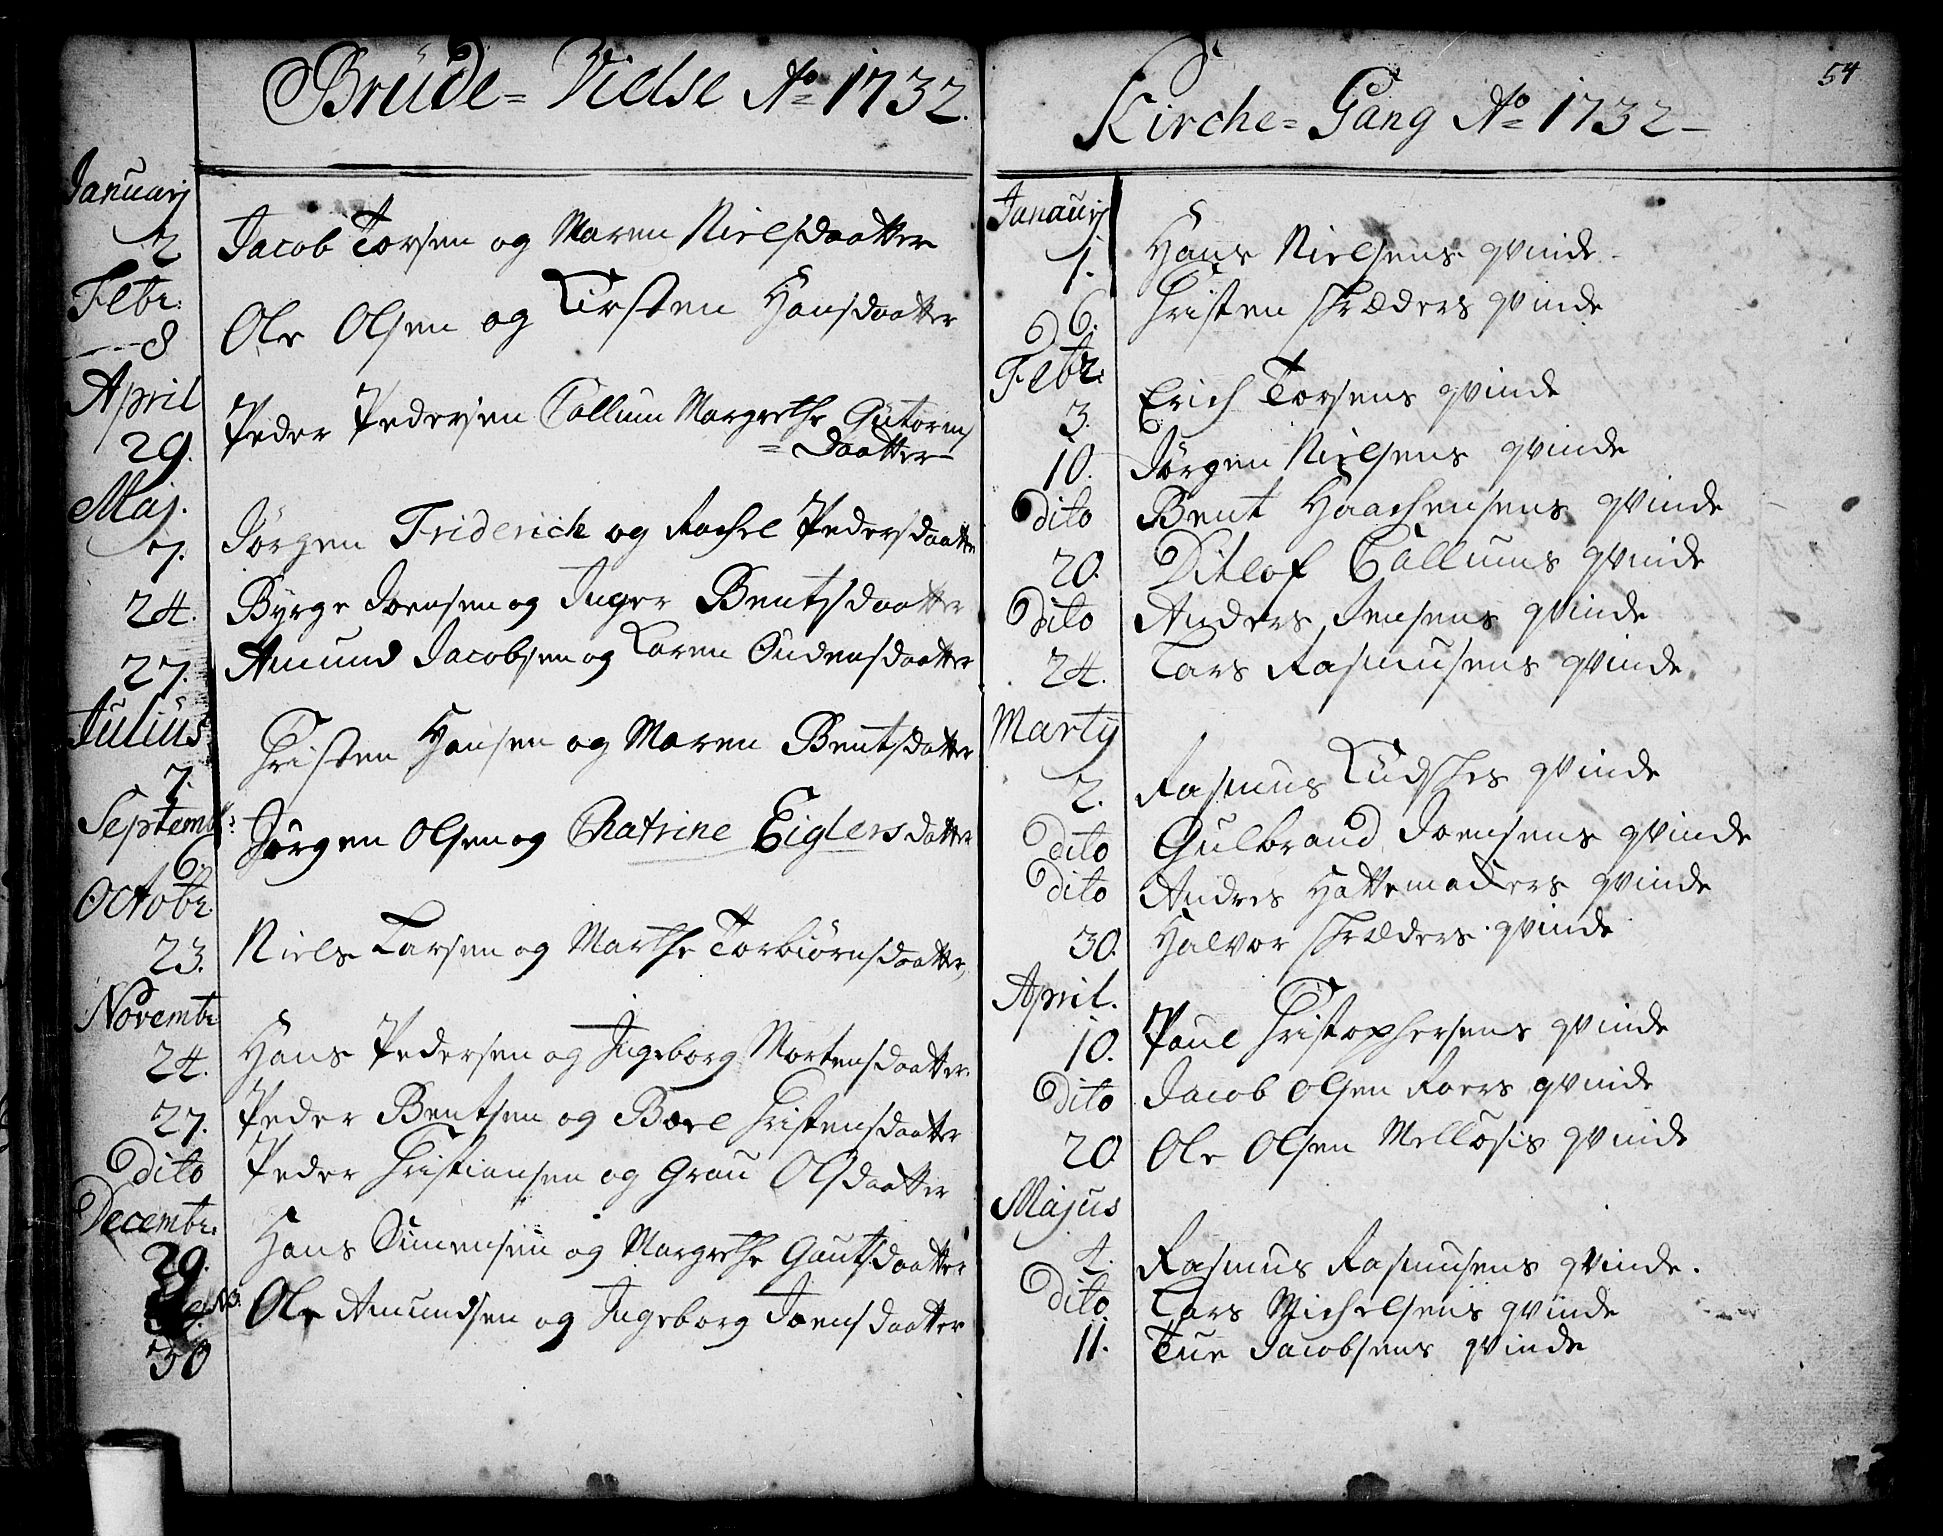 Brude=Vielse Aº 1732.
Januarij
2 Jacob Torsen og Maren Nielsdaatter
Febr:
8 Ole Olsen og Kirsten Hansdaatter
April
29. Peder Pedersen Collum Margrethe Gutorms
=daatter
Maj.
7. Jørgen Friderich og Rachel Pedersdaatter
24. Byrge Joensen og Inger Bentsdaatter
27. Amund Jacobsen og Karen Eudensdaatter
Julius
7. Christen Hansen og Maren Bentsdatter
Septembr:
6 Jørgen Olsen og Chatrine Eiglersdatter
Octobr.
23. Niels Larsen og Marthe Torbiørnsdaatter
Novembr
24. Hans Pedersen og Ingeborg Mortensdaatter
27. Peder Bentsen og Boel Christensdaatter
Dito Peder Christiansen og Grau Olsdaatter
Decembr.
29. Hans Simensen og Margrethe Gautsdaatter
30 Ole Amundsen og Ingeborg Joensdaatter
54
Kirche=Gang Aº 1732
Janauarij
1. Hans Nielsens qvinde
6. Christen Skræders qvinde
Febr.
3. Erich Torsens qvinde
10. Jørgen Nielsens qvinde
Dito Bent Haachensens qvinde
20. Ditlof Collums qvinde
Dito Anders Jensens qvinde
24. Lars Rasmusens qvinde
Martij
2. Rasmus qvinde
Dito Gulbrand Joensens qvinde
Dito Andres Hattemachers qvinde
30. Halvor Skræders qvinde
April.
10. Paul Christophersens qvinde
Dito Jacob Olsen Roers qvinde
20 Ole Olsen Mellosis qvinde
Majus
4. Rasmus Rasmusens qvinde.
Dito Lars Michelsens qvinde
11. Tue Jacobsens qvinde